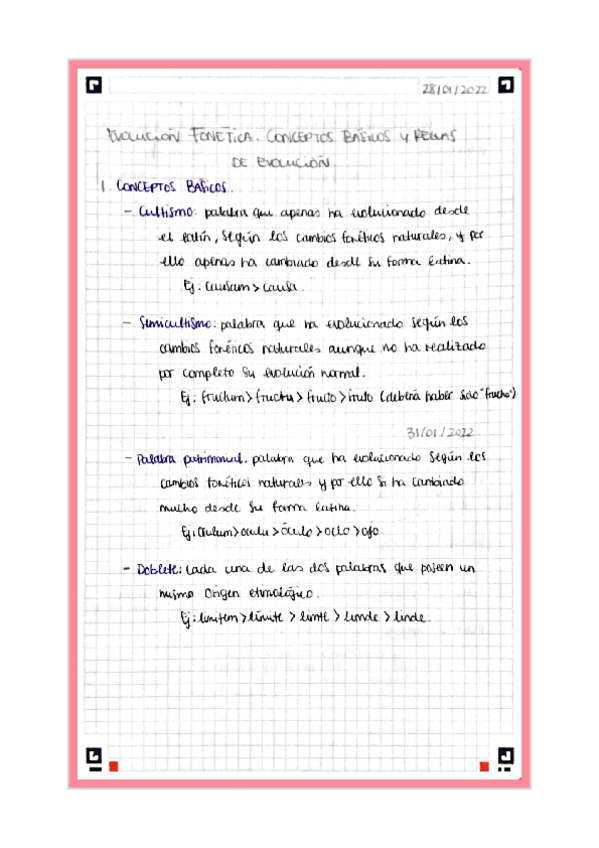 28/01/2022
EVOLUCIÓN FONÉTICA. CONCEPTOS BÁSICOS Y REGLAS
DE EVOLUCIÓN
1. CONCEPTOS BÁSICOS.
- Cultismo: palabra que apenas ha evolucionado desde
el latín, según los cambios fonéticos naturales, y por
ello apenas ha cambiado desde su forma latina.
Ej: Causam > causa.
- Semicultismo: palabra que ha evolucionado según los
cambios fonéticos naturales aunque no ha realizado
por completo su evolución normal.
Ej: fructum > fructu > fructo > fruto (debería haber sido "frucho")
31/01/2022
- Palabra patrimonial: palabra que ha evolucionado según los
cambios fonéticos naturales y por ello si ha cambiado
mucho desde su forma latina.
Ej: Oculum > oculu > óculo > oclo > ojo
- Doblete: cada una de las dos palabras que poseen un
mismo origen etimológico.
Ej: limitem > límite > limte > limde > linde.